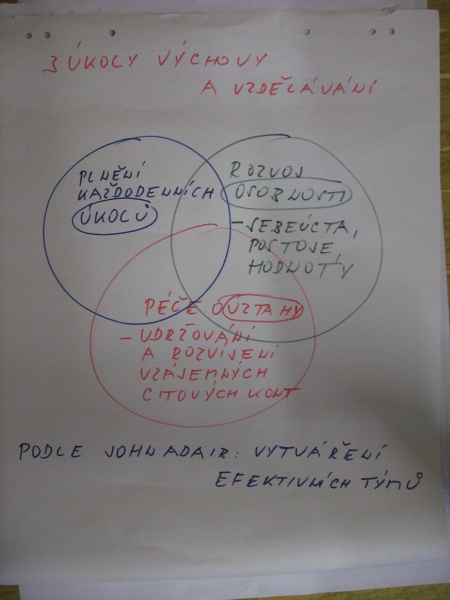 3 ÚKOLY VÝCHOVY
A VZDĚLÁVÁNÍ
PLNĚNÍ
KAŽDODENNÍCH
ÚKOLŮ
ROZVOJ
OSOBNOSTI
– SEBEÚCTA,
POSTOJE,
HODNOTY
PÉČE O VZTAHY
– UDRŽOVÁNÍ
A ROZVÍJENÍ
VZÁJEMNÝCH
CITOVÝCH KONT
PODLE JOHN ADAIR: VYTVÁŘENÍ
EFEKTIVNÍCH TÝMŮ